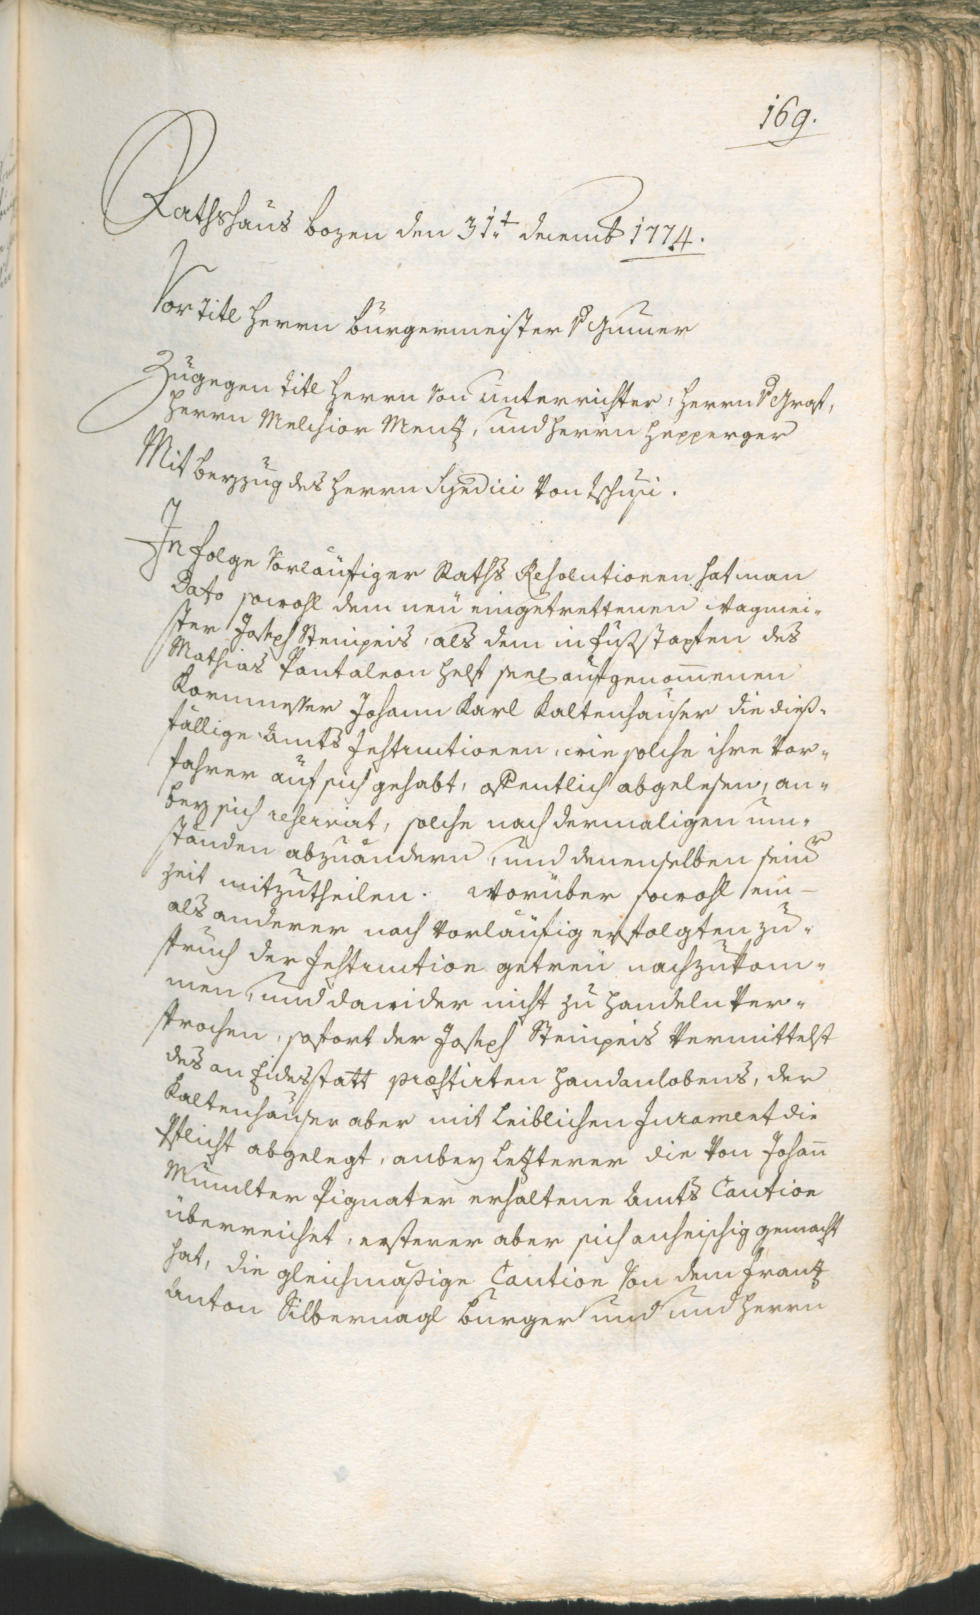 169.
Rathshaus bozen den 31t decemb 1774.
Vor titl herrn bürgermeister v Gumer
Zugegen titl herrn von unterrichter, herrn v Graf,
herrn Melchior Mentz, und herrn hepperger
Mit beyzug des herrn Syndici von tschusi.
In folge vorläufiger Raths Resolutionen hat man
Dato sowohl dem neu eingetrettenen wagmei-
ster Joseph Steinpeis, als dem in fußstapfen des
Mathias Pantaleon helf seel aufgenommenen
Kornmesser Johann Karl Kaltenhauser die dieß-
fällige Amts Instructionen, wie solche ihre vor-
fahrer auf sich gehabt, offentlich abgelesen, an-
bey sich reservirt, solche nach dermaligen um-
ständen abzuändern, und denenselben seinr
zeit mitzutheilen. Worüber sowohl ein-
als anderer nach vorläufig erfolgten zu-
spruch der Instruction getreu nachzukom-
men, und dawider nicht zu handeln ver-
sprochen, sofort der Joseph Steinpeis vermittelst
des an Eidesstatt præstirten handanlobens, der
Kaltenhauser aber mit leiblichen Jurament die
Pflicht abgelegt, anbey letzterer die von Johann
Mumelter Pignater erhaltene Amts Caution
überreichet, ersterer aber sich anheischig gemacht
hat, die gleichmäßige Caution von dem Frantz
Anton Silbernagl burger und und herrn